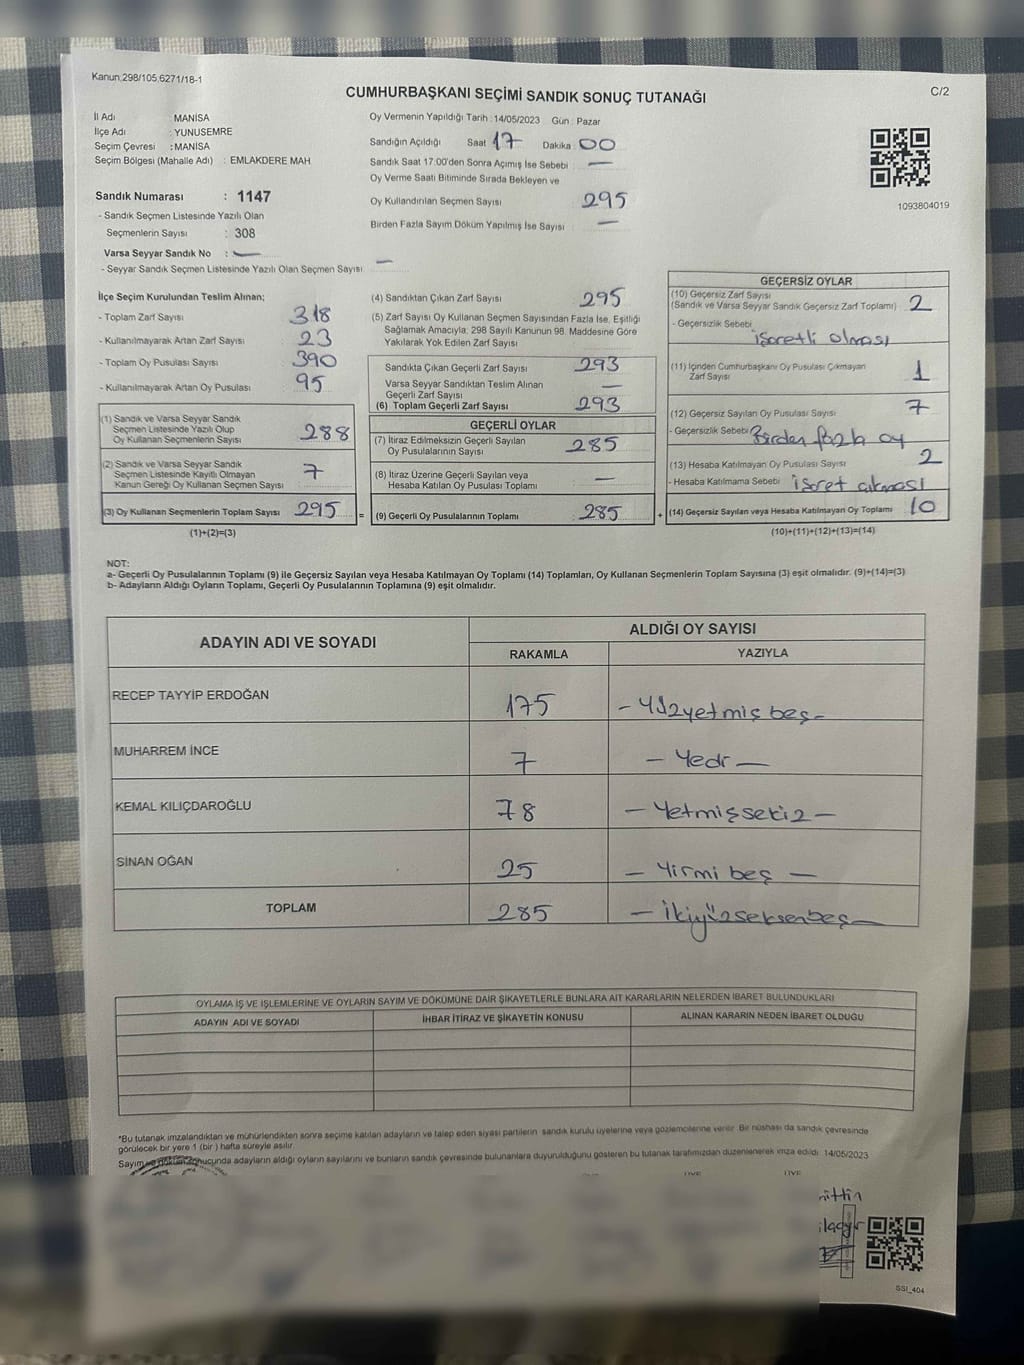 Kanun,298/105,6271/18-1
C/2
CUMHURBAŞKANI SEÇİMİ SANDIK SONUÇ TUTANAĞI
İl Adı : MANİSA
İlçe Adı : YUNUSEMRE
Seçim Çevresi : MANİSA
Seçim Bölgesi (Mahalle Adı) : EMLAKDERE MAH
Sandık Numarası : 1147
- Sandık Seçmen Listesinde Yazılı Olan
Seçmenlerin Sayısı : 308
Varsa Seyyar Sandık No : —
- Seyyar Sandık Seçmen Listesinde Yazılı Olan Seçmen Sayısı —
Oy Vermenin Yapıldığı Tarih : 14/05/2023 Gün : Pazar
Sandığın Açıldığı Saat 17 Dakika : 00
Sandık Saat 17:00'den Sonra Açımış İse Sebebi : —
Oy Verme Saati Bitiminde Sırada Bekleyen ve
Oy Kullandırılan Seçmen Sayısı 295
Birden Fazla Sayım Döküm Yapılmış İse Sayısı —
1093804019
İlçe Seçim Kurulundan Teslim Alınan;
- Toplam Zarf Sayısı 318
- Kullanılmayarak Artan Zarf Sayısı 23
- Toplam Oy Pusulası Sayısı 390
- Kullanılmayarak Artan Oy Pusulası 95
(1) Sandık ve Varsa Seyyar Sandık
Seçmen Listesinde Yazılı Olup
Oy Kullanan Seçmenlerin Sayısı 288
(2) Sandık ve Varsa Seyyar Sandık
Seçmen Listesinde Kayıtlı Olmayan
Kanun Gereği Oy Kullanan Seçmen Sayısı 7
(3) Oy Kullanan Seçmenlerin Toplam Sayısı 295 =
(1)+(2)=(3)
(4) Sandıktan Çıkan Zarf Sayısı 295
(5) Zarf Sayısı Oy Kullanan Seçmen Sayısından Fazla İse, Eşitliği
Sağlamak Amacıyla; 298 Sayılı Kanunun 98. Maddesine Göre
Yakılarak Yok Edilen Zarf Sayısı
Sandıkta Çıkan Geçerli Zarf Sayısı 293
Varsa Seyyar Sandıktan Teslim Alınan
Geçerli Zarf Sayısı —
(6) Toplam Geçerli Zarf Sayısı 293
GEÇERLİ OYLAR
(7) İtiraz Edilmeksizin Geçerli Sayılan
Oy Pusulalarının Sayısı 285
(8) İtiraz Üzerine Geçerli Sayılan veya
Hesaba Katılan Oy Pusulası Toplamı —
(9) Geçerli Oy Pusulalarının Toplamı 285 +
GEÇERSİZ OYLAR
(10) Geçersiz Zarf Sayısı
(Sandık ve Varsa Seyyar Sandık Geçersiz Zarf Toplamı) 2
- Geçersizlik Sebebi
işaretli olması
(11) İçinden Cumhurbaşkanı Oy Pusulası Çıkmayan
Zarf Sayısı 1
(12) Geçersiz Sayılan Oy Pusulası Sayısı 7
- Geçersizlik Sebebi Birden fazla oy
(13) Hesaba Katılmayan Oy Pusulası Sayısı 2
- Hesaba Katılmama Sebebi işaret çıkması
(14) Geçersiz Sayılan veya Hesaba Katılmayan Oy Toplamı 10
(10)+(11)+(12)+(13)=(14)
NOT:
a- Geçerli Oy Pusulalarının Toplamı (9) ile Geçersiz Sayılan veya Hesaba Katılmayan Oy Toplamı (14) Toplamları, Oy Kullanan Seçmenlerin Toplam Sayısına (3) eşit olmalıdır. (9)+(14)=(3)
b- Adayların Aldığı Oyların Toplamı, Geçerli Oy Pusulalarının Toplamına (9) eşit olmalıdır.
ADAYIN ADI VE SOYADI
ALDIĞI OY SAYISI
RAKAMLA YAZIYLA
RECEP TAYYİP ERDOĞAN 175 - Yüzyetmiş beş -
MUHARREM İNCE 7 - Yedi -
KEMAL KILIÇDAROĞLU 78 - Yetmişsekiz -
SİNAN OĞAN 25 - Yirmi beş -
TOPLAM 285 - İkiyüzseksenbeş -
OYLAMA İŞ VE İŞLEMLERİNE VE OYLARIN SAYIM VE DÖKÜMÜNE DAİR ŞİKAYETLERLE BUNLARA AİT KARARLARIN NELERDEN İBARET BULUNDUKLARI
ADAYIN ADI VE SOYADI İHBAR İTİRAZ VE ŞİKAYETİN KONUSU ALINAN KARARIN NEDEN İBARET OLDUĞU
*Bu tutanak imzalandıktan ve mühürlendikten sonra seçime katılan adayların ve talep eden siyasi partilerin sandık kurulu üyelerine veya gözlemcilerine verilir. Bir nüshası da sandık çevresinde
görülecek bir yere 1 (bir) hafta süreyle asılır.
Sayım ve sonucunda adayların aldığı oyların sayılarını ve bunların sandık çevresinde bulunanlara duyurulduğunu gösteren bu tutanak tarafımızdan düzenlenerek imza edildi. 14/05/2023
SSI_404